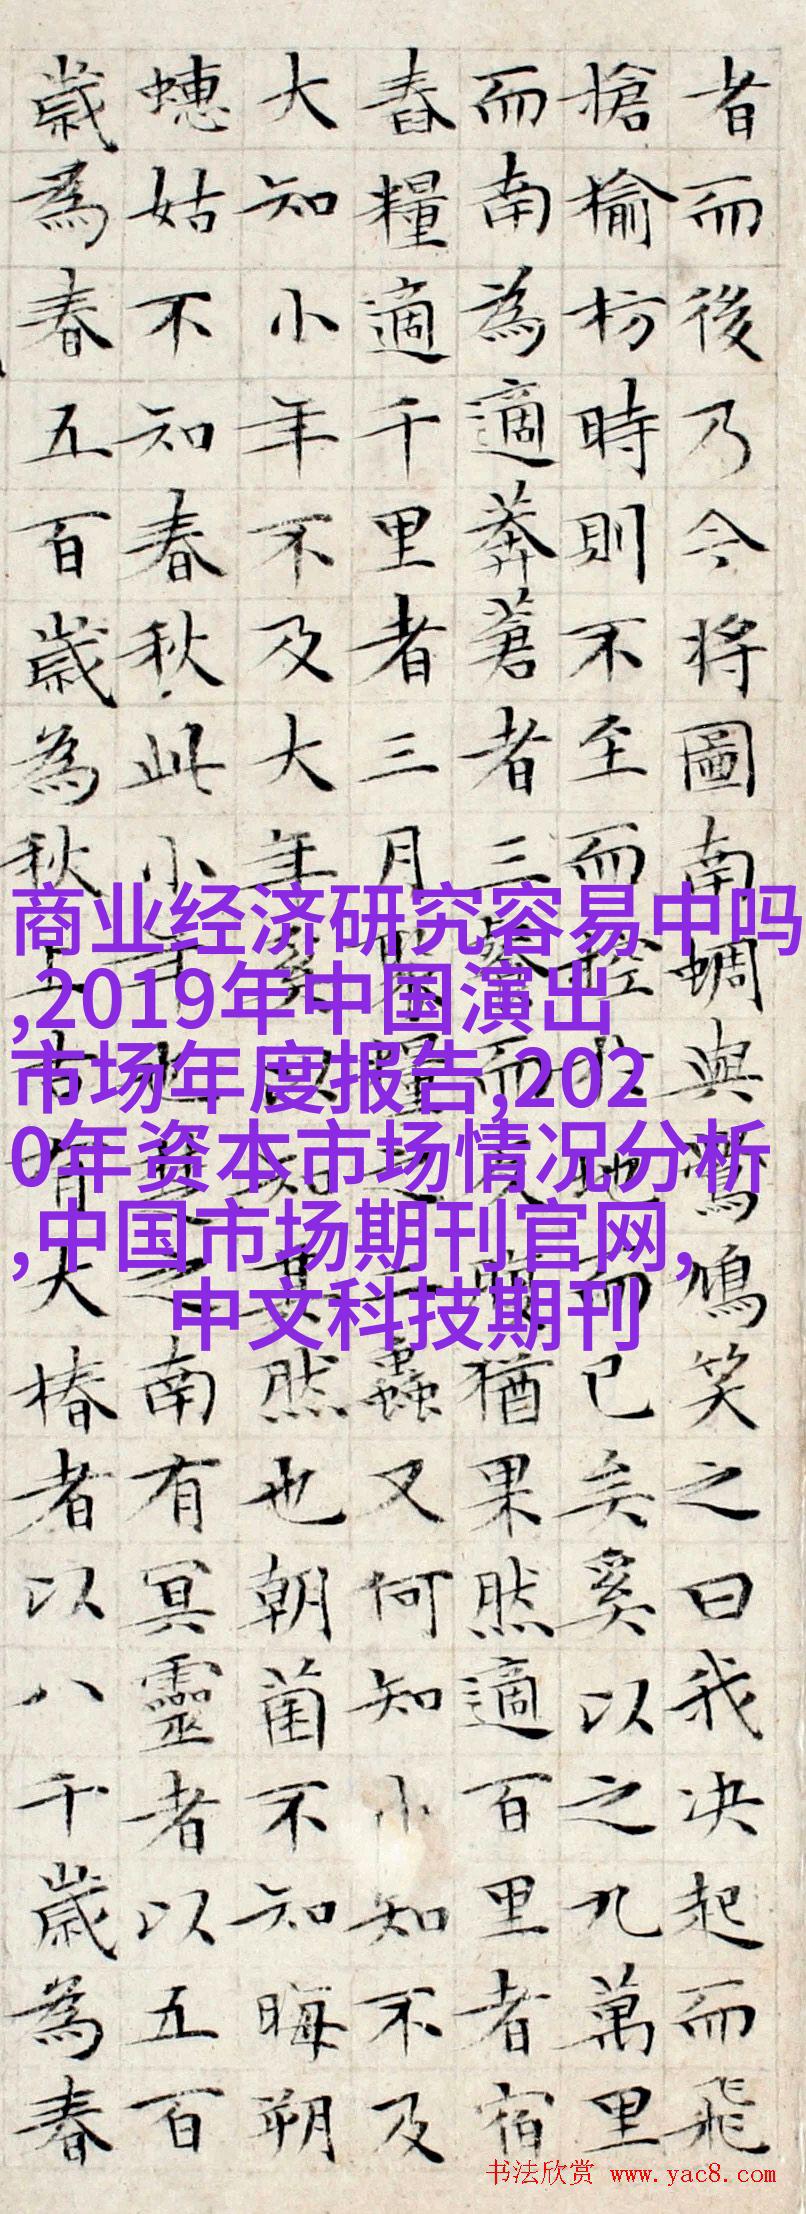 者而後乃今将圖南蜩與鷽鳩笑之曰我决起而飛
搶榆枋時則不至而控於地而已矣奚以之九萬里
而南為適莽蒼者三飡而反腹猶果然適百里者宿
舂糧適千里者三月聚糧之二蟲又何知小知不及
大知小年不及大年奚以知其然也朝菌不知晦朔
蟪姑不知春秋此小年也楚之南有冥靈者以五百
歲為春五百歲為秋上古有大椿者以八千歲為春
商业经济研究容易中吗
,2019年中国演出
市场年度报告,202
0年资本市场情况分析
,中国市场期刊官网,
中文科技期刊
书法欣赏 www.yac8.com